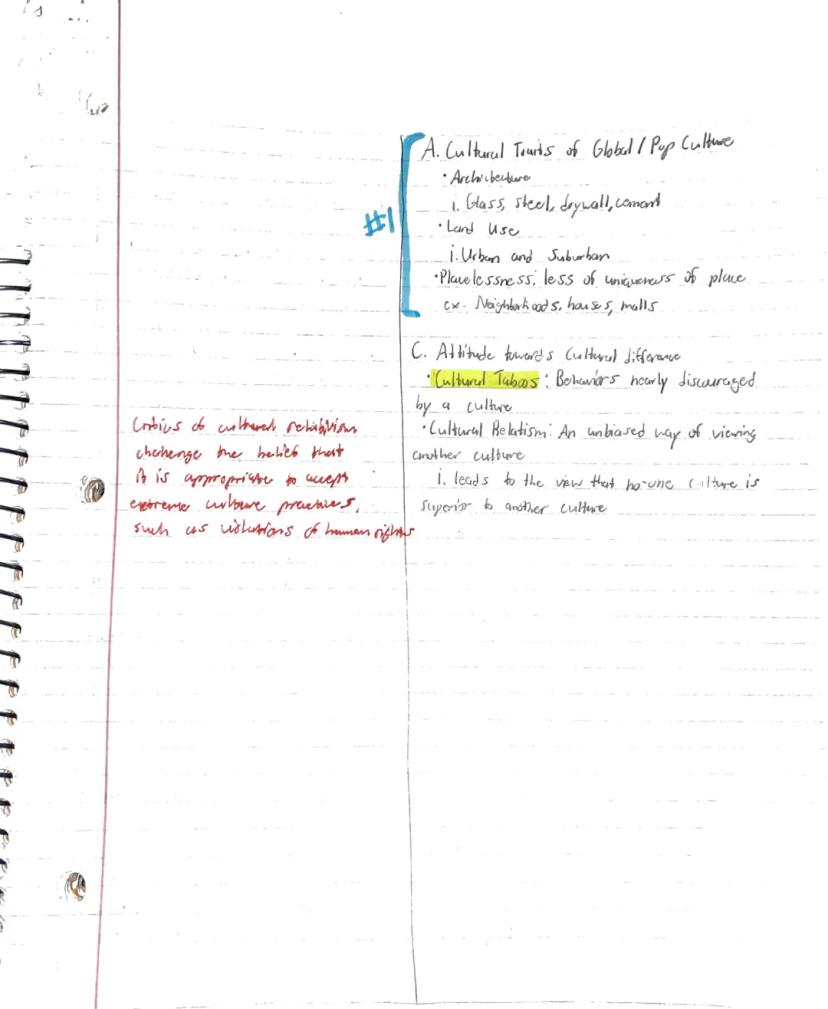 A. Cultural Traits of Global / Pop Culture
• Architecture
i. Glass, steel, drywall, cement
#1
• Land Use
i. Urban and Suburban
• Placelessness: less of uniqueness of place
ex. Neighborhoods, houses, malls
C. Attitude towards Cultural difference
• Cultural Taboos: Behaviors nearly discouraged
by a culture
• Cultural Relatism: An unbiased way of viewing
another culture
i. leads to the view that no-one culture is
superior to another culture
Critics of cultural relativism
challenge the belief that
it is appropriate to accept
extreme culture practices,
such as violations of human rights